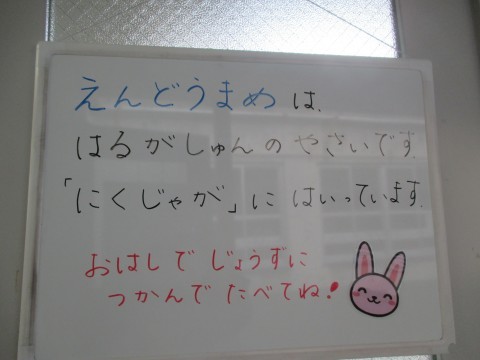 えんどうまめ は、
はるがしゅんの やさいです。
「にくじゃが」に はいっています。
おはしで じょうずに
つかんで たべてね!